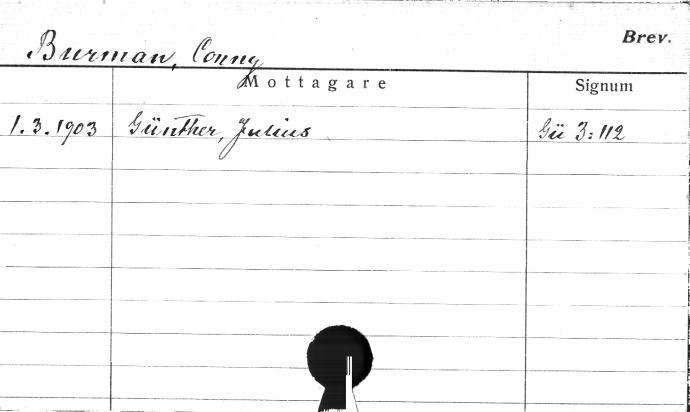 Brev.
Burman, Conny
Mottagare Signum
1.3.1903 Günther, Julius Gü 3:112